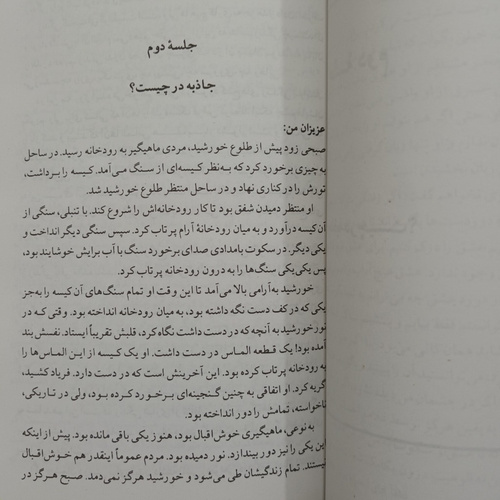 جلسهٔ دوم
جاذبه در چیست؟
عزیزان من:
صبحی زود پیش از طلوع خورشید، مردی ماهیگیر به رودخانه رسید. در ساحل
به چیزی برخورد کرد که به‌نظر کیسه‌ای از سنگ می‌آمد. کیسه را برداشت،
تورش را در کناری نهاد و در ساحل منتظر طلوع خورشید شد.
او منتظر دمیدن شفق بود تا کار رودخانه‌اش را شروع کند. با تنبلی، سنگی از
آن کیسه درآورد و به میان رودخانهٔ آرام پرتاب کرد. سپس سنگی دیگر انداخت و
یکی دیگر. در سکوت بامدادی صدای برخورد سنگ با آب برایش خوشایند بود،
پس یکی‌یکی سنگ‌ها را به درون رودخانه پرتاب کرد.
خورشید به‌آرامی بالا می‌آمد تا این وقت او تمام سنگ‌های آن کیسه را به‌جز
یکی که در کف دست نگه داشته بود، به میان رودخانه انداخته بود. وقتی که در
نور خورشید به آنچه که در دست داشت نگاه کرد، قلبش تقریباً ایستاد. نفسش بند
آمده بود! یک قطعه الماس در دست داشت. او یک کیسه از این الماس‌ها را
به رودخانه پرتاب کرده بود. این آخرینش است که در دست دارد. فریاد کشید،
گریه کرد. او اتفاقی به چنین گنجینه‌ای برخورد کرده بود، ولی در تاریکی،
ناخواسته، تمامش را دور انداخته بود.
به نوعی، ماهیگیری خوش اقبال بود، هنوز یکی باقی مانده بود. پیش از اینکه
این یکی را نیز دور بیندازد. نور دمیده بود. مردم عموماً اینقدر هم خوش‌اقبال
نیستند. تمام زندگیشان طی می‌شود و خورشید هرگز نمی‌دمد. صبح هرگز در